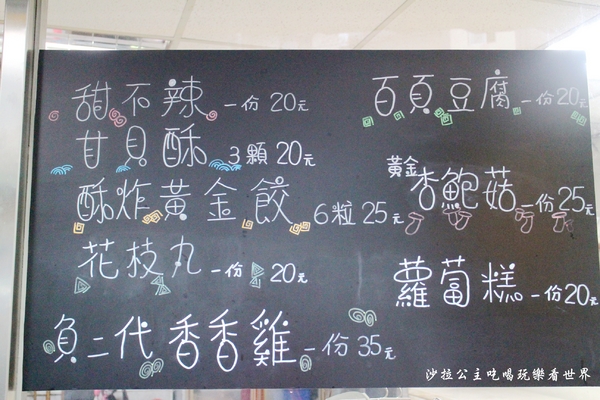 甜不辣 一份 20元
甘貝酥 3顆 20元
酥炸黃金餃 6粒 25元
花枝丸 一份 20元
負二代香香雞 一份 35元
百頁豆腐 一份 20元
黃金杏鮑菇 一份 25元
蘿蔔糕 一份 20元
沙拉公主吃喝玩樂看世界